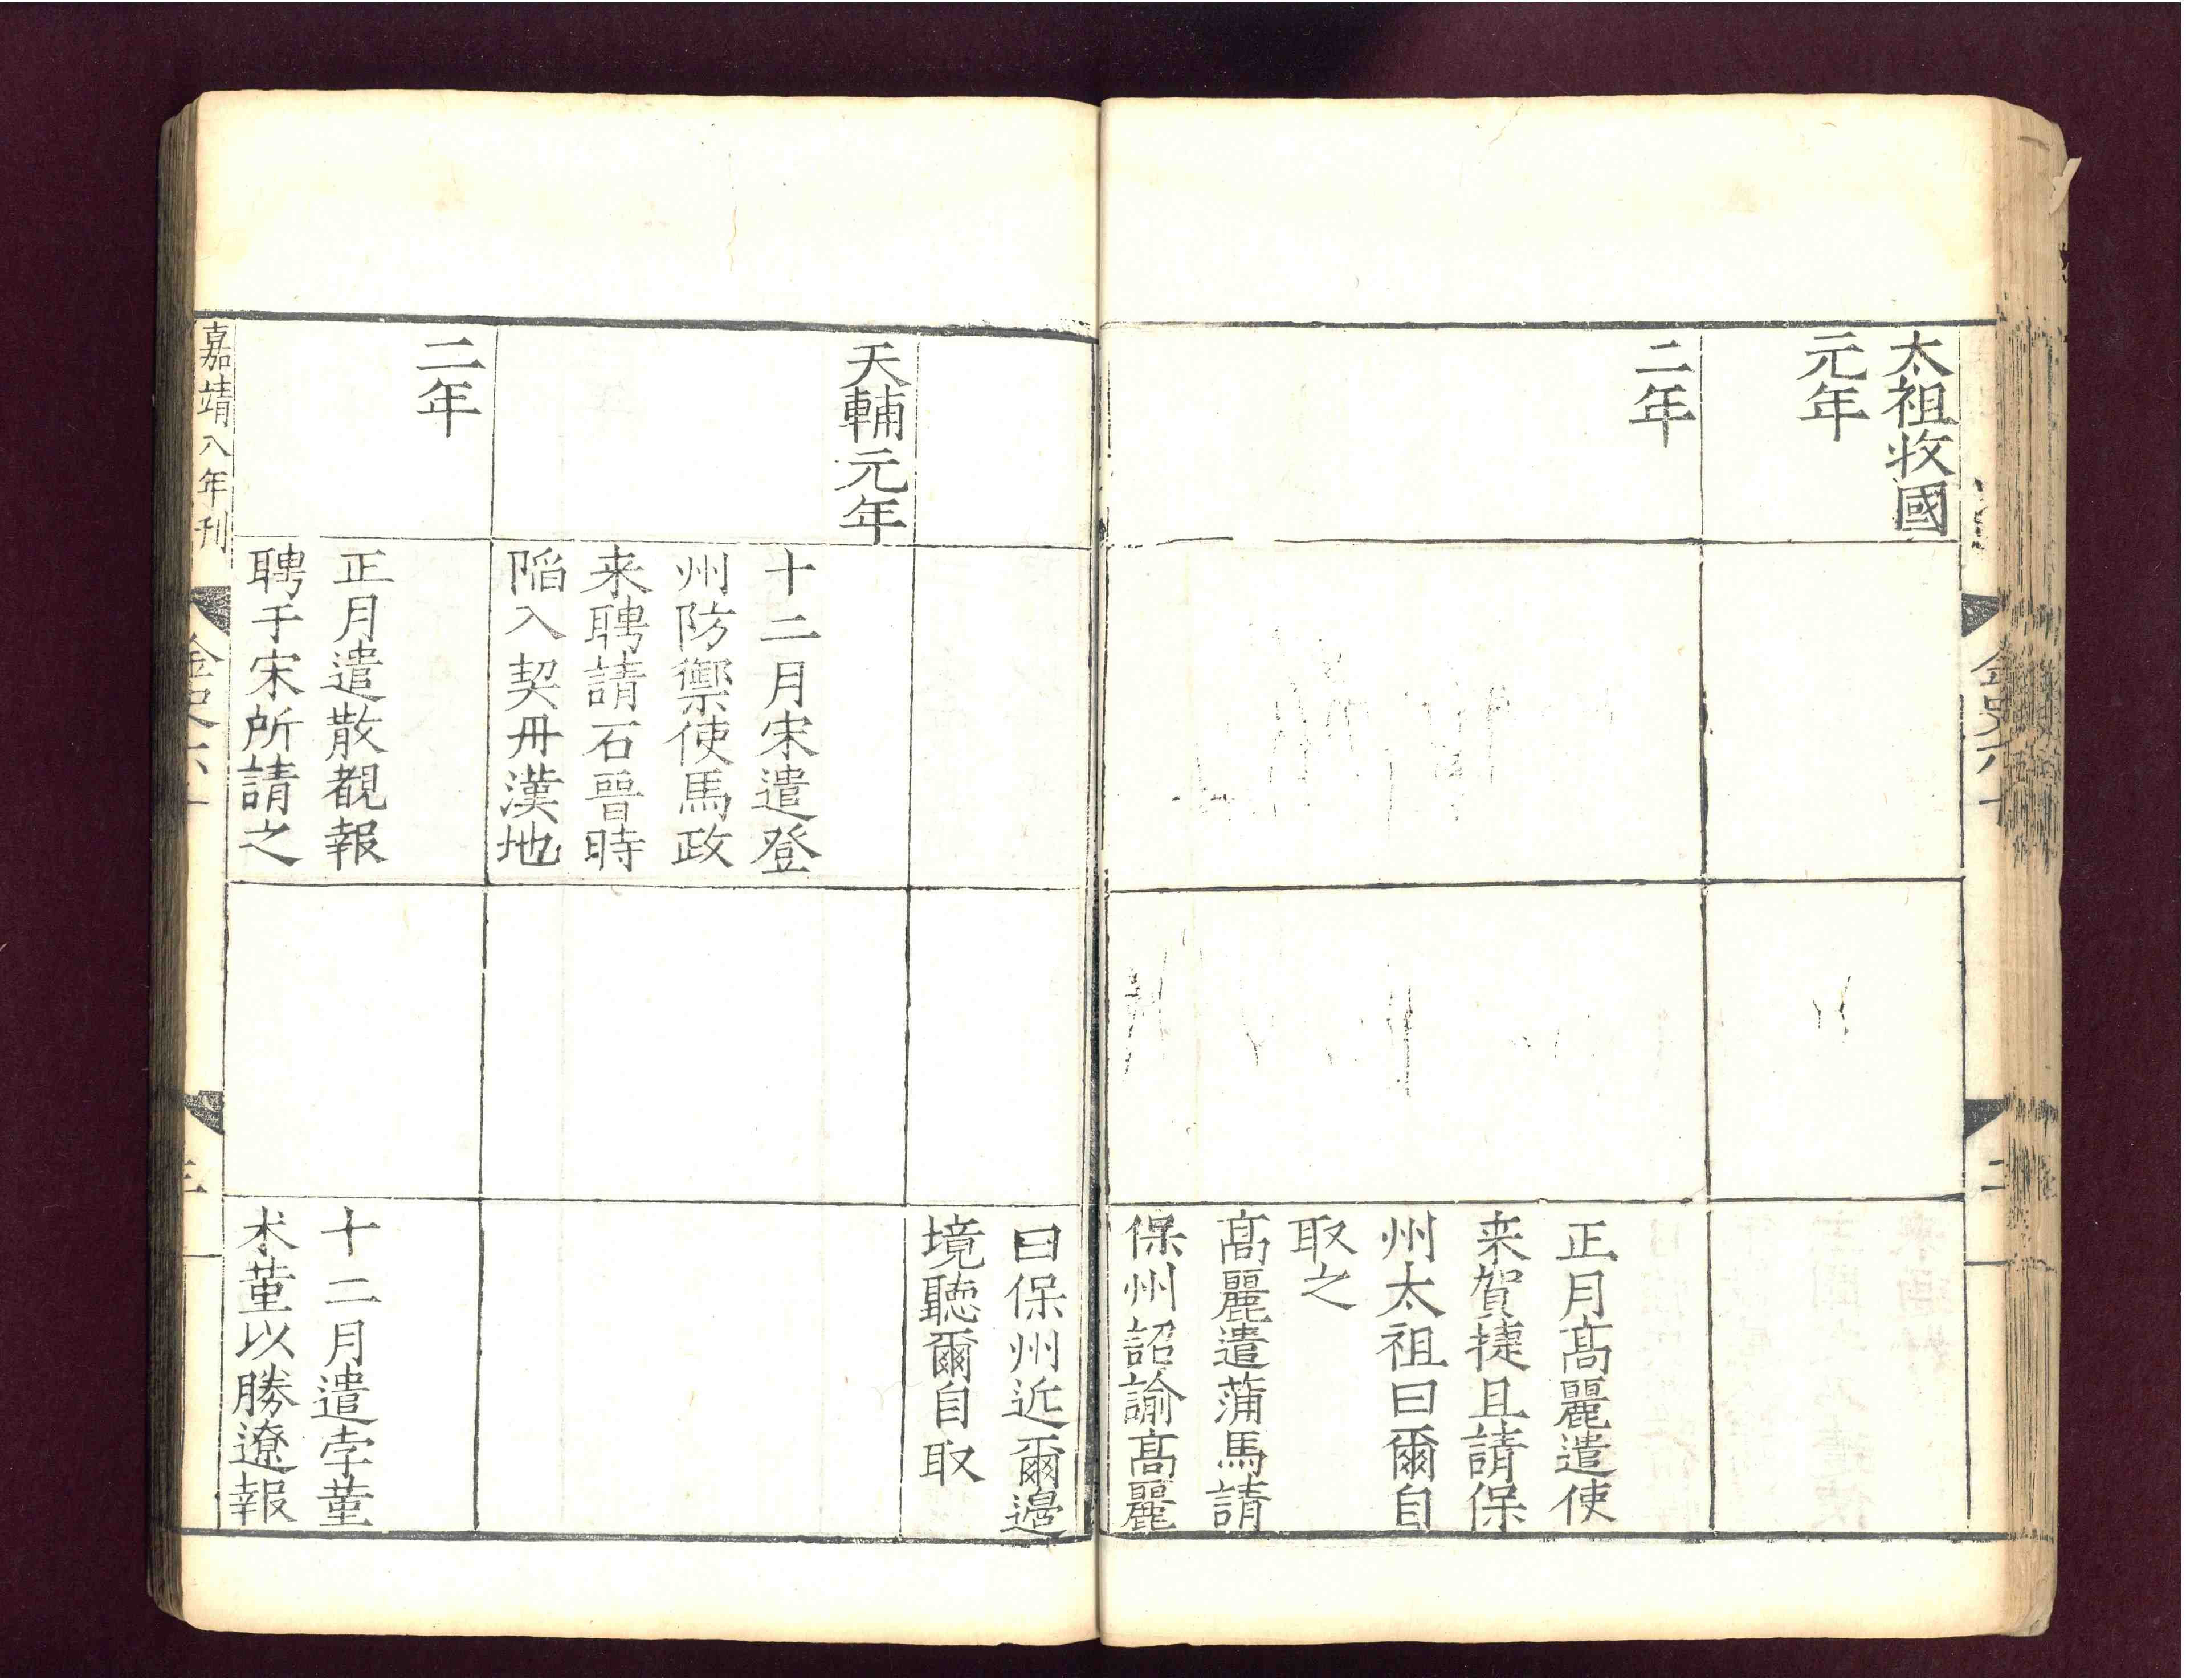 太祖收國
元年
二年
正月髙麗遣使
来賀捷且請保
州太祖曰爾自
取之
髙麗遣蒲馬請
保州詔諭髙麗
曰保州近爾邊
境聽爾自取
天輔元年
十二月宋遣登
州防禦使馬政
来聘請石晉時
陷入契丹漢地
二年
正月遣散覩報
聘于宋所請之
十二月遣孛菫
朮菫以勝遼報
嘉靖八年刊
金史六十
三